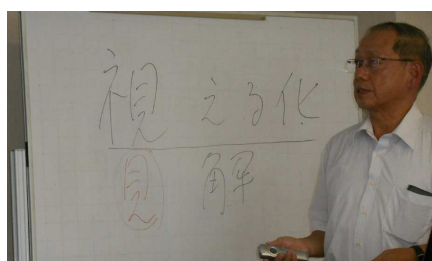 視える化
見 解